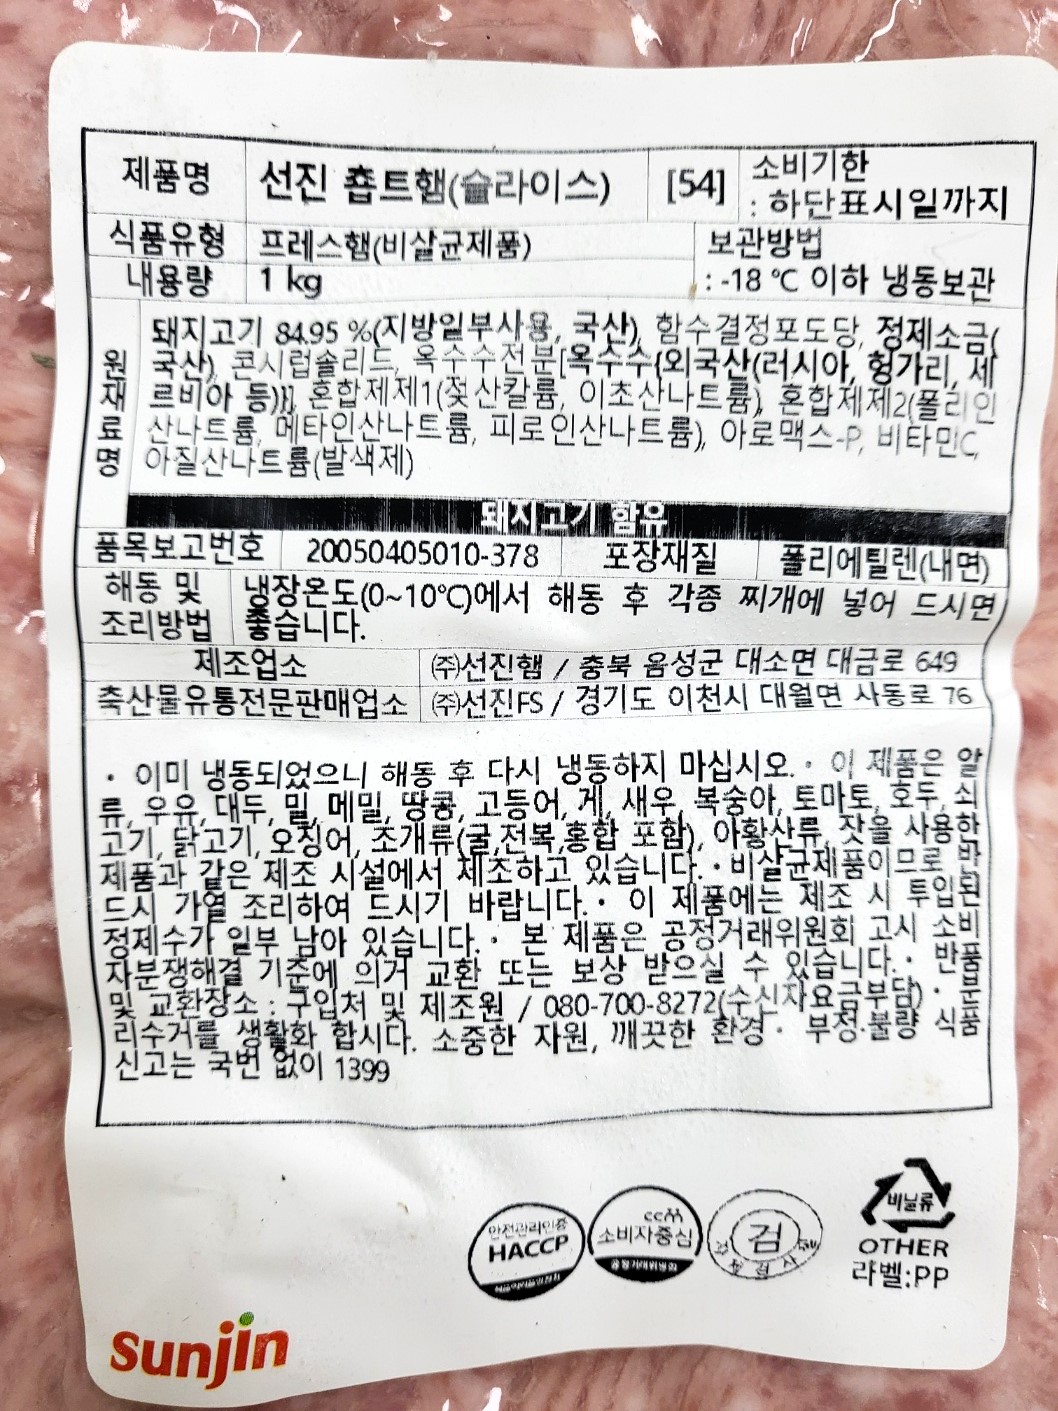 제품명 선진 촙트햄(슬라이스) [54] 소비기한
: 하단표시일까지
식품유형 프레스햄(비살균제품) 보관방법
내용량 1 kg : -18 ℃ 이하 냉동보관
원재료명
돼지고기 84.95 %(지방일부사용, 국산), 함수결정포도당, 정제소금(
국산), 콘시럽솔리드, 옥수수전분[옥수수{외국산(러시아, 헝가리, 세
르비아 등)}], 혼합제제1(젖산칼륨, 이초산나트륨), 혼합제제2(폴리인
산나트륨, 메타인산나트륨, 피로인산나트륨), 아로맥스-P, 비타민C,
아질산나트륨(발색제)
돼지고기 함유
품목보고번호 20050405010-378 포장재질 폴리에틸렌(내면)
해동 및 조리방법
냉장온도(0~10℃)에서 해동 후 각종 찌개에 넣어 드시면
좋습니다.
제조업소 ㈜선진햄 / 충북 음성군 대소면 대금로 649
축산물유통전문판매업소 ㈜선진FS / 경기도 이천시 대월면 사동로 76
· 이미 냉동되었으니 해동 후 다시 냉동하지 마십시오. · 이 제품은 알
류, 우유, 대두, 밀, 메밀, 땅콩, 고등어, 게, 새우, 복숭아, 토마토, 호두, 쇠
고기, 닭고기, 오징어, 조개류(굴,전복,홍합 포함), 아황산류, 잣을 사용한
제품과 같은 제조 시설에서 제조하고 있습니다. · 비살균제품이므로 반
드시 가열 조리하여 드시기 바랍니다. · 이 제품에는 제조 시 투입된
정제수가 일부 남아 있습니다. · 본 제품은 공정거래위원회 고시 소비
자분쟁해결 기준에 의거 교환 또는 보상 받으실 수 있습니다. · 반품
및 교환장소 : 구입처 및 제조원 / 080-700-8272(수신자요금부담) · 분
리수거를 생활화 합시다. 소중한 자원, 깨끗한 환경 · 부정·불량 식품
신고는 국번 없이 1399
안전관리인증
HACCP
ccm
소비자중심
공정거래위원회
검
비닐류
OTHER
라벨:PP
sunjin